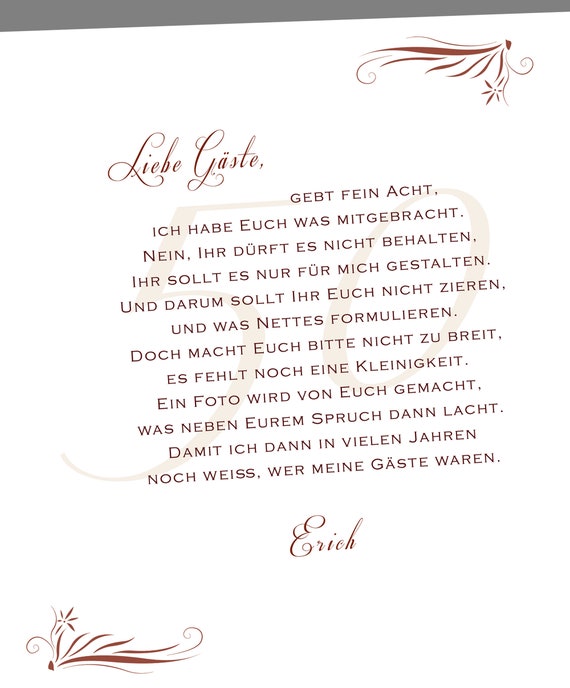 Liebe Gäste,
gebt fein Acht,
ich habe Euch was mitgebracht.
Nein, Ihr dürft es nicht behalten,
Ihr sollt es nur für mich gestalten.
Und darum sollt Ihr Euch nicht zieren,
und was Nettes formulieren.
Doch macht Euch bitte nicht zu breit,
es fehlt noch eine Kleinigkeit.
Ein Foto wird von Euch gemacht,
was neben Eurem Spruch dann lacht.
Damit ich dann in vielen Jahren
noch weiss, wer meine Gäste waren.
Erich
50